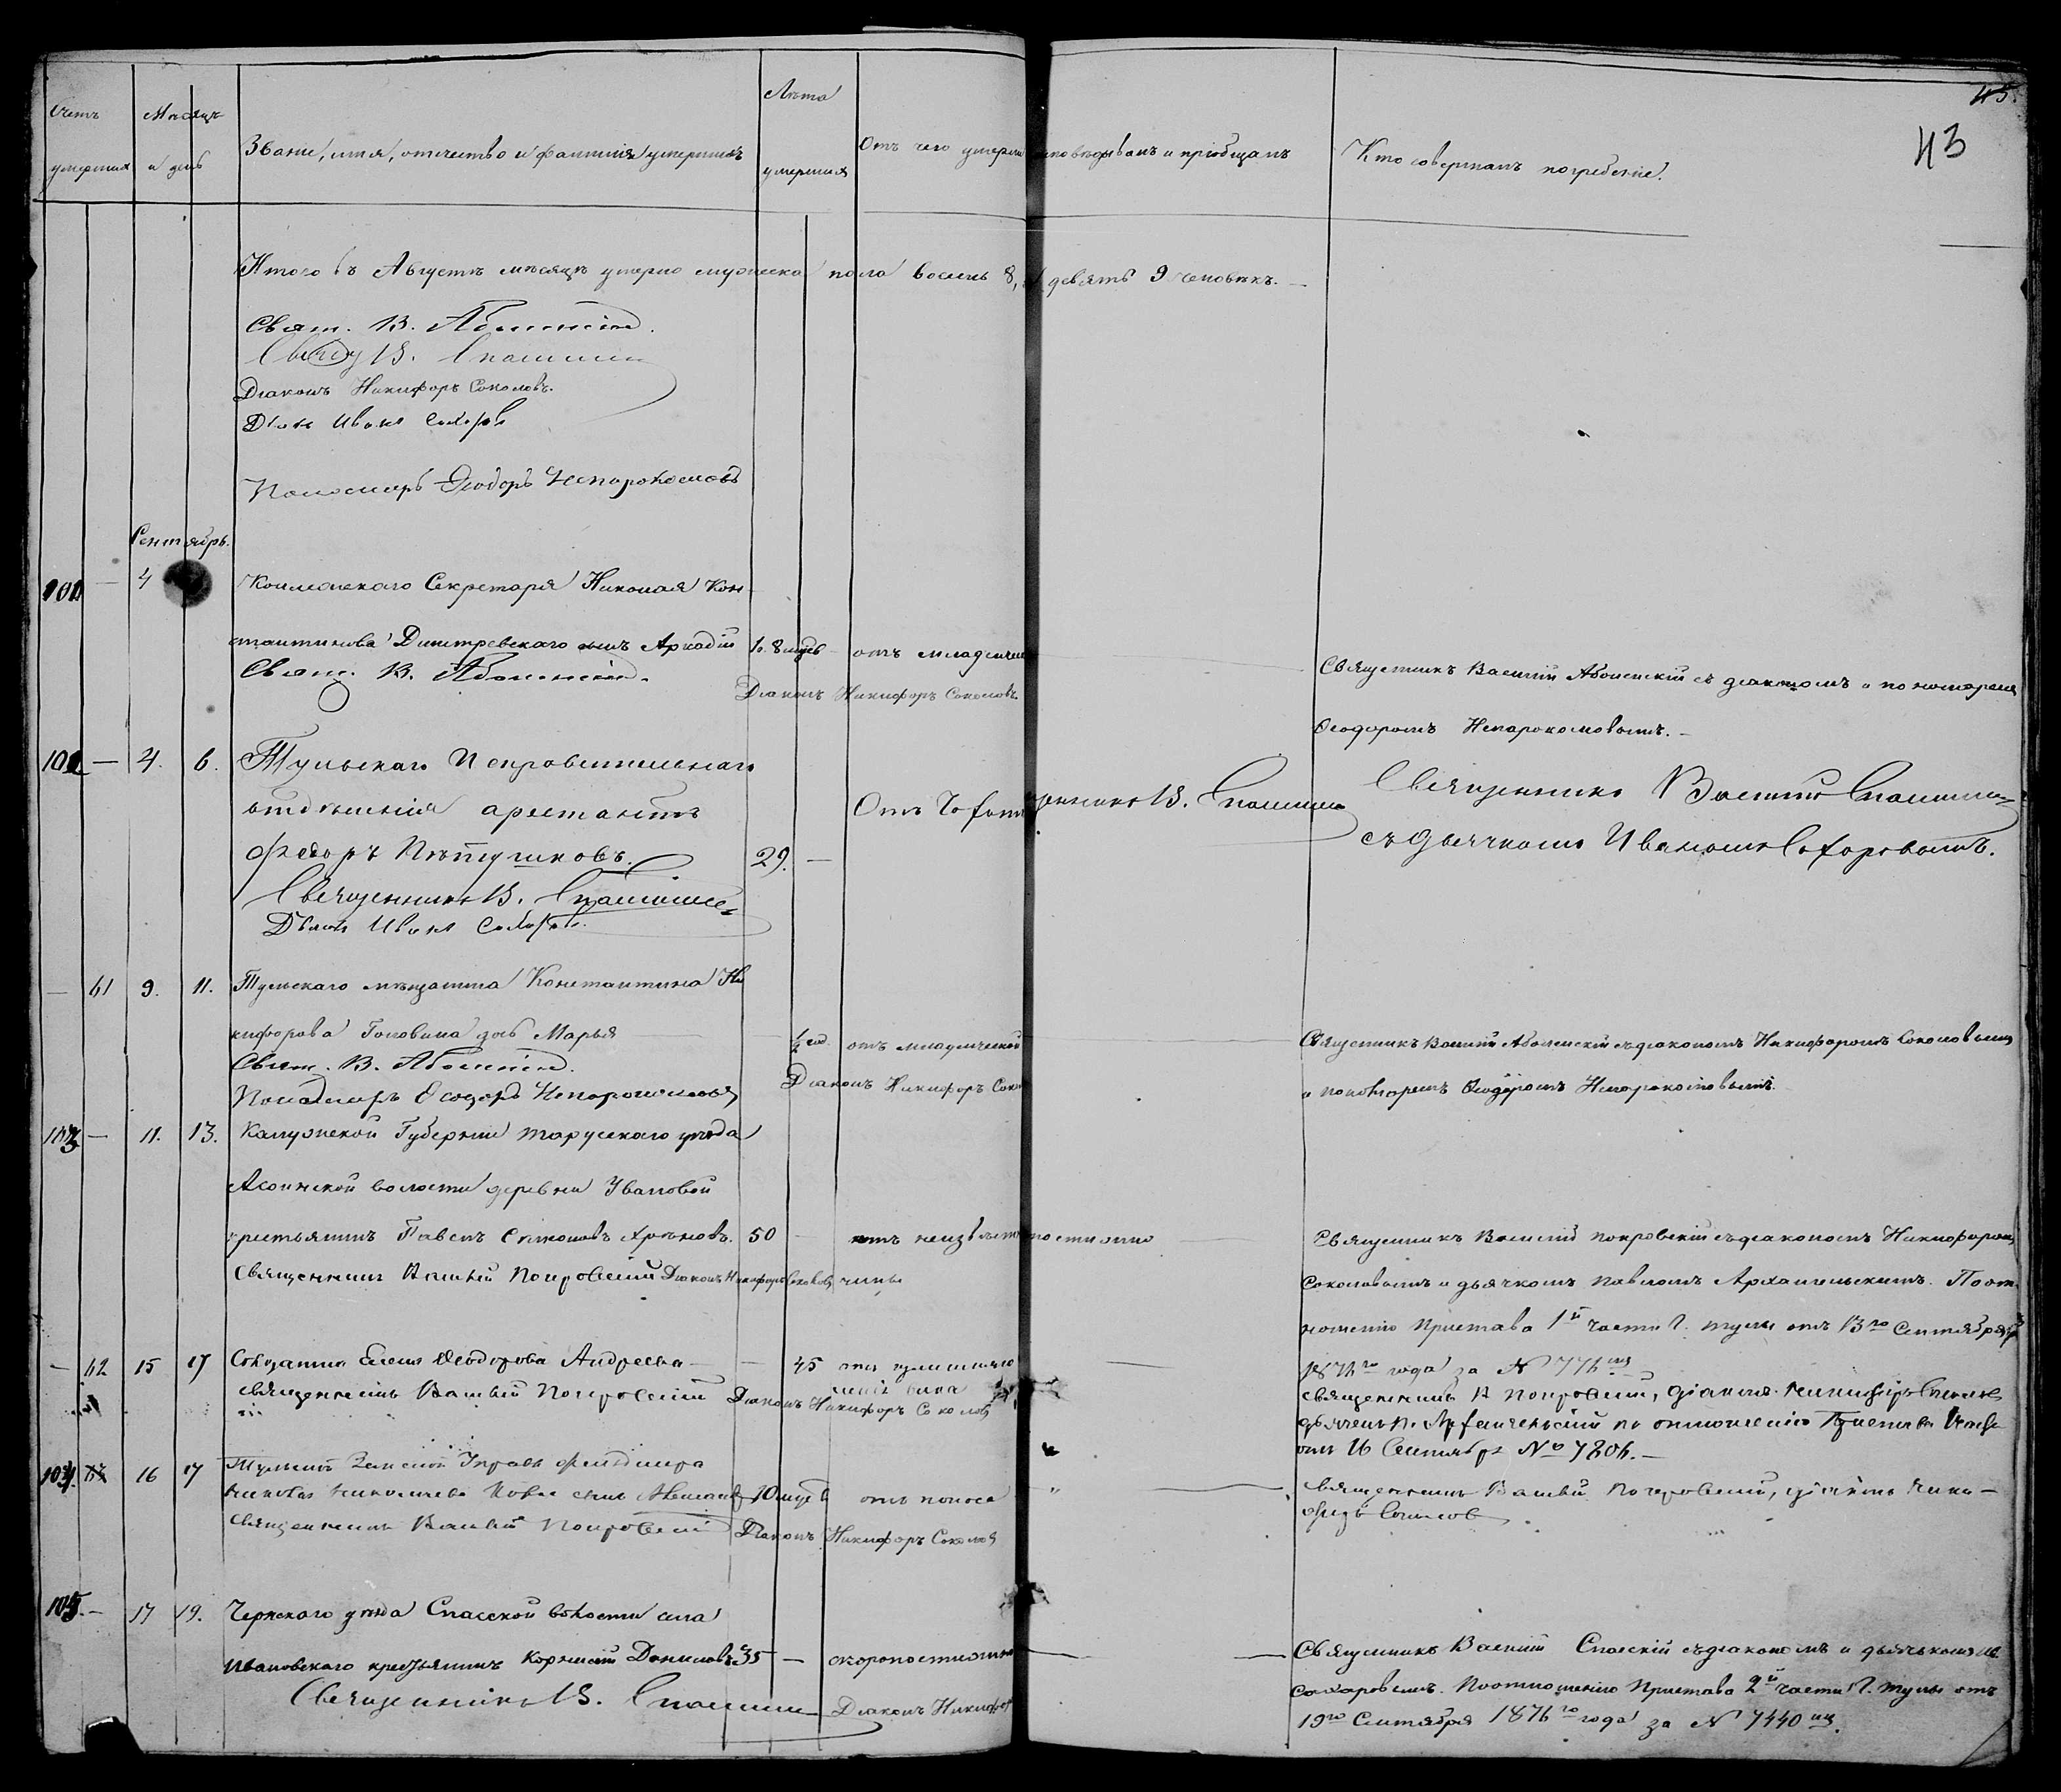 Счетъ умершихъ
Мѣсяцъ и день
Званіе, имя, отчество и фамилія умершихъ
Лѣта умершихъ
Отъ чего умерли
исповѣдывалъ и пріобщалъ
Кто совершалъ погребеніе.
43
Итого въ Августѣ мѣсяцѣ умерло мужеска пола восемь 8, девять 9 человѣкъ.
Свящ. В. Аболенскій.
Свящ. В. Спасскій
Діаконъ Никифоръ Соколовъ.
Дьяч Иванъ Сахаровъ
Пономарь Ѳеодоръ Непорокомовъ
Сентябрь.
101 — 4
Коллежскаго Секретаря Николая Кон
стантинова Димтревскаго сынъ Аркадій 1. 8 мцевъ отъ младенче
Свящ. В. Аболенскій.
Діаконъ Никифоръ Соколовъ.
Священникъ Василій Аболенскій съ діакономъ и пономаремъ
Ѳеодоромъ Непарокомовымъ.
102 — 4. 6. Тульскаго Исправительнаго
отдѣленія арестантъ
Ѳедоръ Пѣтушковъ. 29. —
Священникъ В. Спасскій
Священникъ В. Спасскій
Дьячк Иванъ Сахаровъ.
Священникъ Василій Спасскій
съ дьячкомъ Иваномъ Сахаровымъ.
— 61 9. 11. Тульскаго мѣщанина Константина Ни
кифорова Головина дочь Марья ½ год. отъ младенческой
Свящ. В. Аболенскій.
Діаконъ Никифоръ Соко
Пономарь Ѳеодоръ Непорокомовъ
Священникъ Василій Аболенскій съ діакономъ Никифоромъ Соколовымъ
и пономаремъ Ѳеодоромъ Непорокомовымъ.
103 — 11. 13. Калужской Губерніи тарусскаго уѣзда
волости деревни Ивановой
крестьянинъ Павелъ Симоновъ Хрѣновъ. 50 — отъ неизвѣстности
Священникъ Василій Покровскій Діаконъ Никифоръ Соколовъ
Священникъ Василій покровскій съ діакономъ Никифоромъ
Соколовымъ и дьячкомъ Павломъ Архангельскимъ. По от
ношенію Пристава 1й части Г. тулы отъ 13го Сентября
го года за №
— 62 15 17 Солдатка Елена Ѳеодорова Андреева — 45
священникъ Василій Покровскій
Діаконъ Никифоръ Соколовъ
священникъ В Покровскій, діаконъ Никифоръ Соколовъ
дьячекъ П. Архангельскій по отношенію Пристава
отъ 16 Сентября №
104. 16 17 Тульской Земской Управы фельдшера
Николаева сынъ 10 мцевъ отъ поноса
священникъ Василій Покровскій
Діаконъ Никифоръ Соколовъ
священникъ Василій Покровскій, діаконъ Ники-
форъ Соколовъ
105. — 17 19. Чернскаго уѣзда Спасской волости села
Ивановскаго крестьянинъ Корнилій Даниловъ 35 — скоропостижно
Священникъ В. Спасскій Діаконъ Никифор
Священникъ Василій Спасскій съ діакономъ и дьячькомъ
Сахаровымъ. По отношенію Пристава 2й части Г. тулы отъ
19го Сентября 187 го года за № 7440